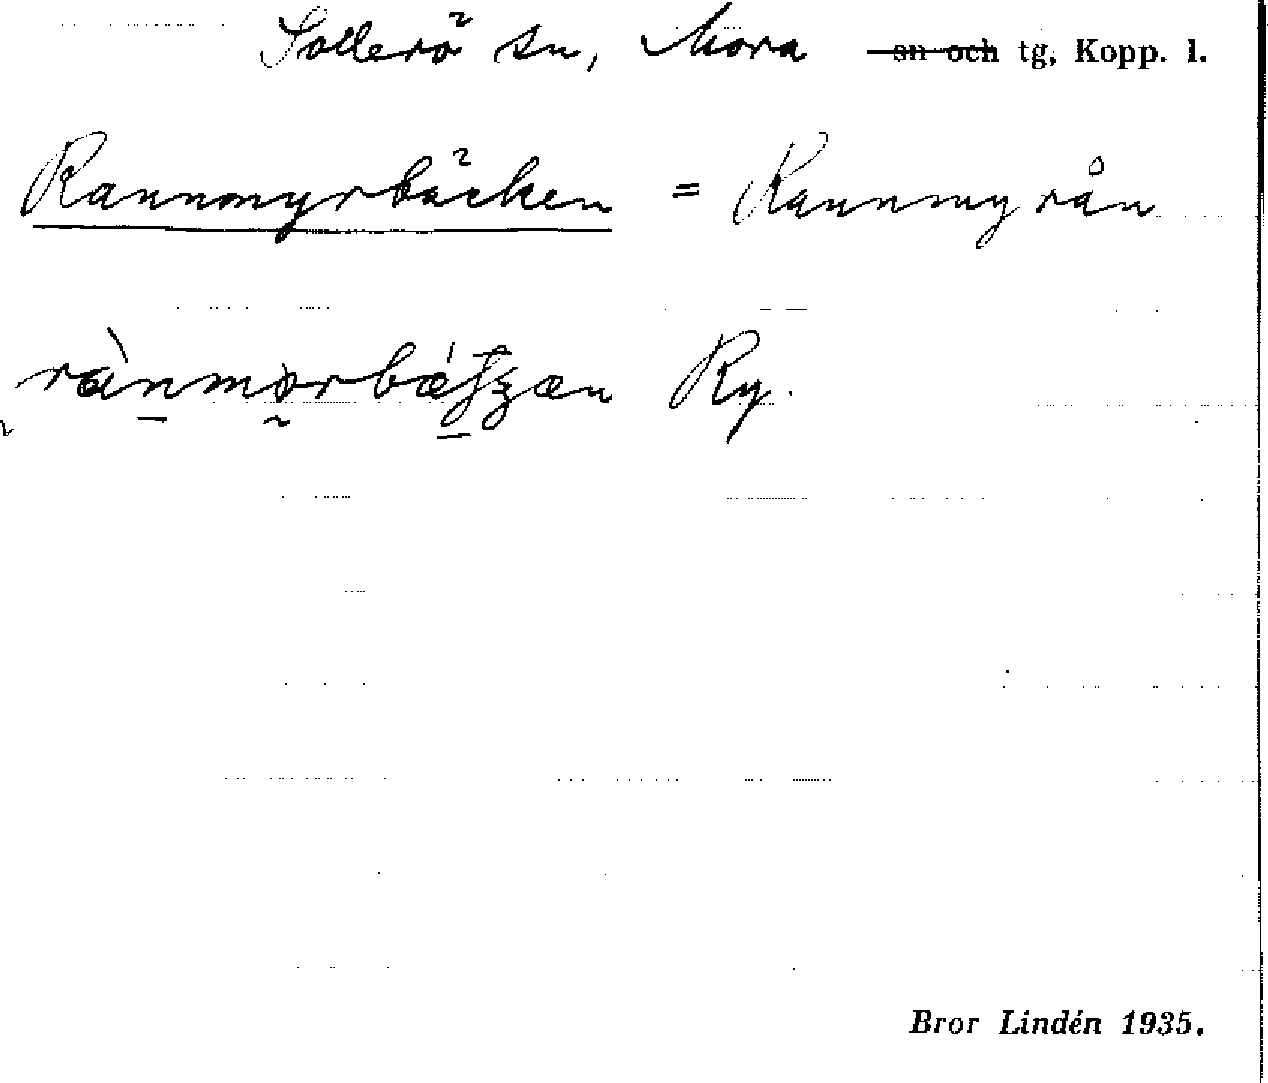 Sollerö sn, Mora ~~sn och~~ tg, Kopp. l.
Rannmyrbäcken = Rannmyrån
Ry.
Bror Lindén 1935.